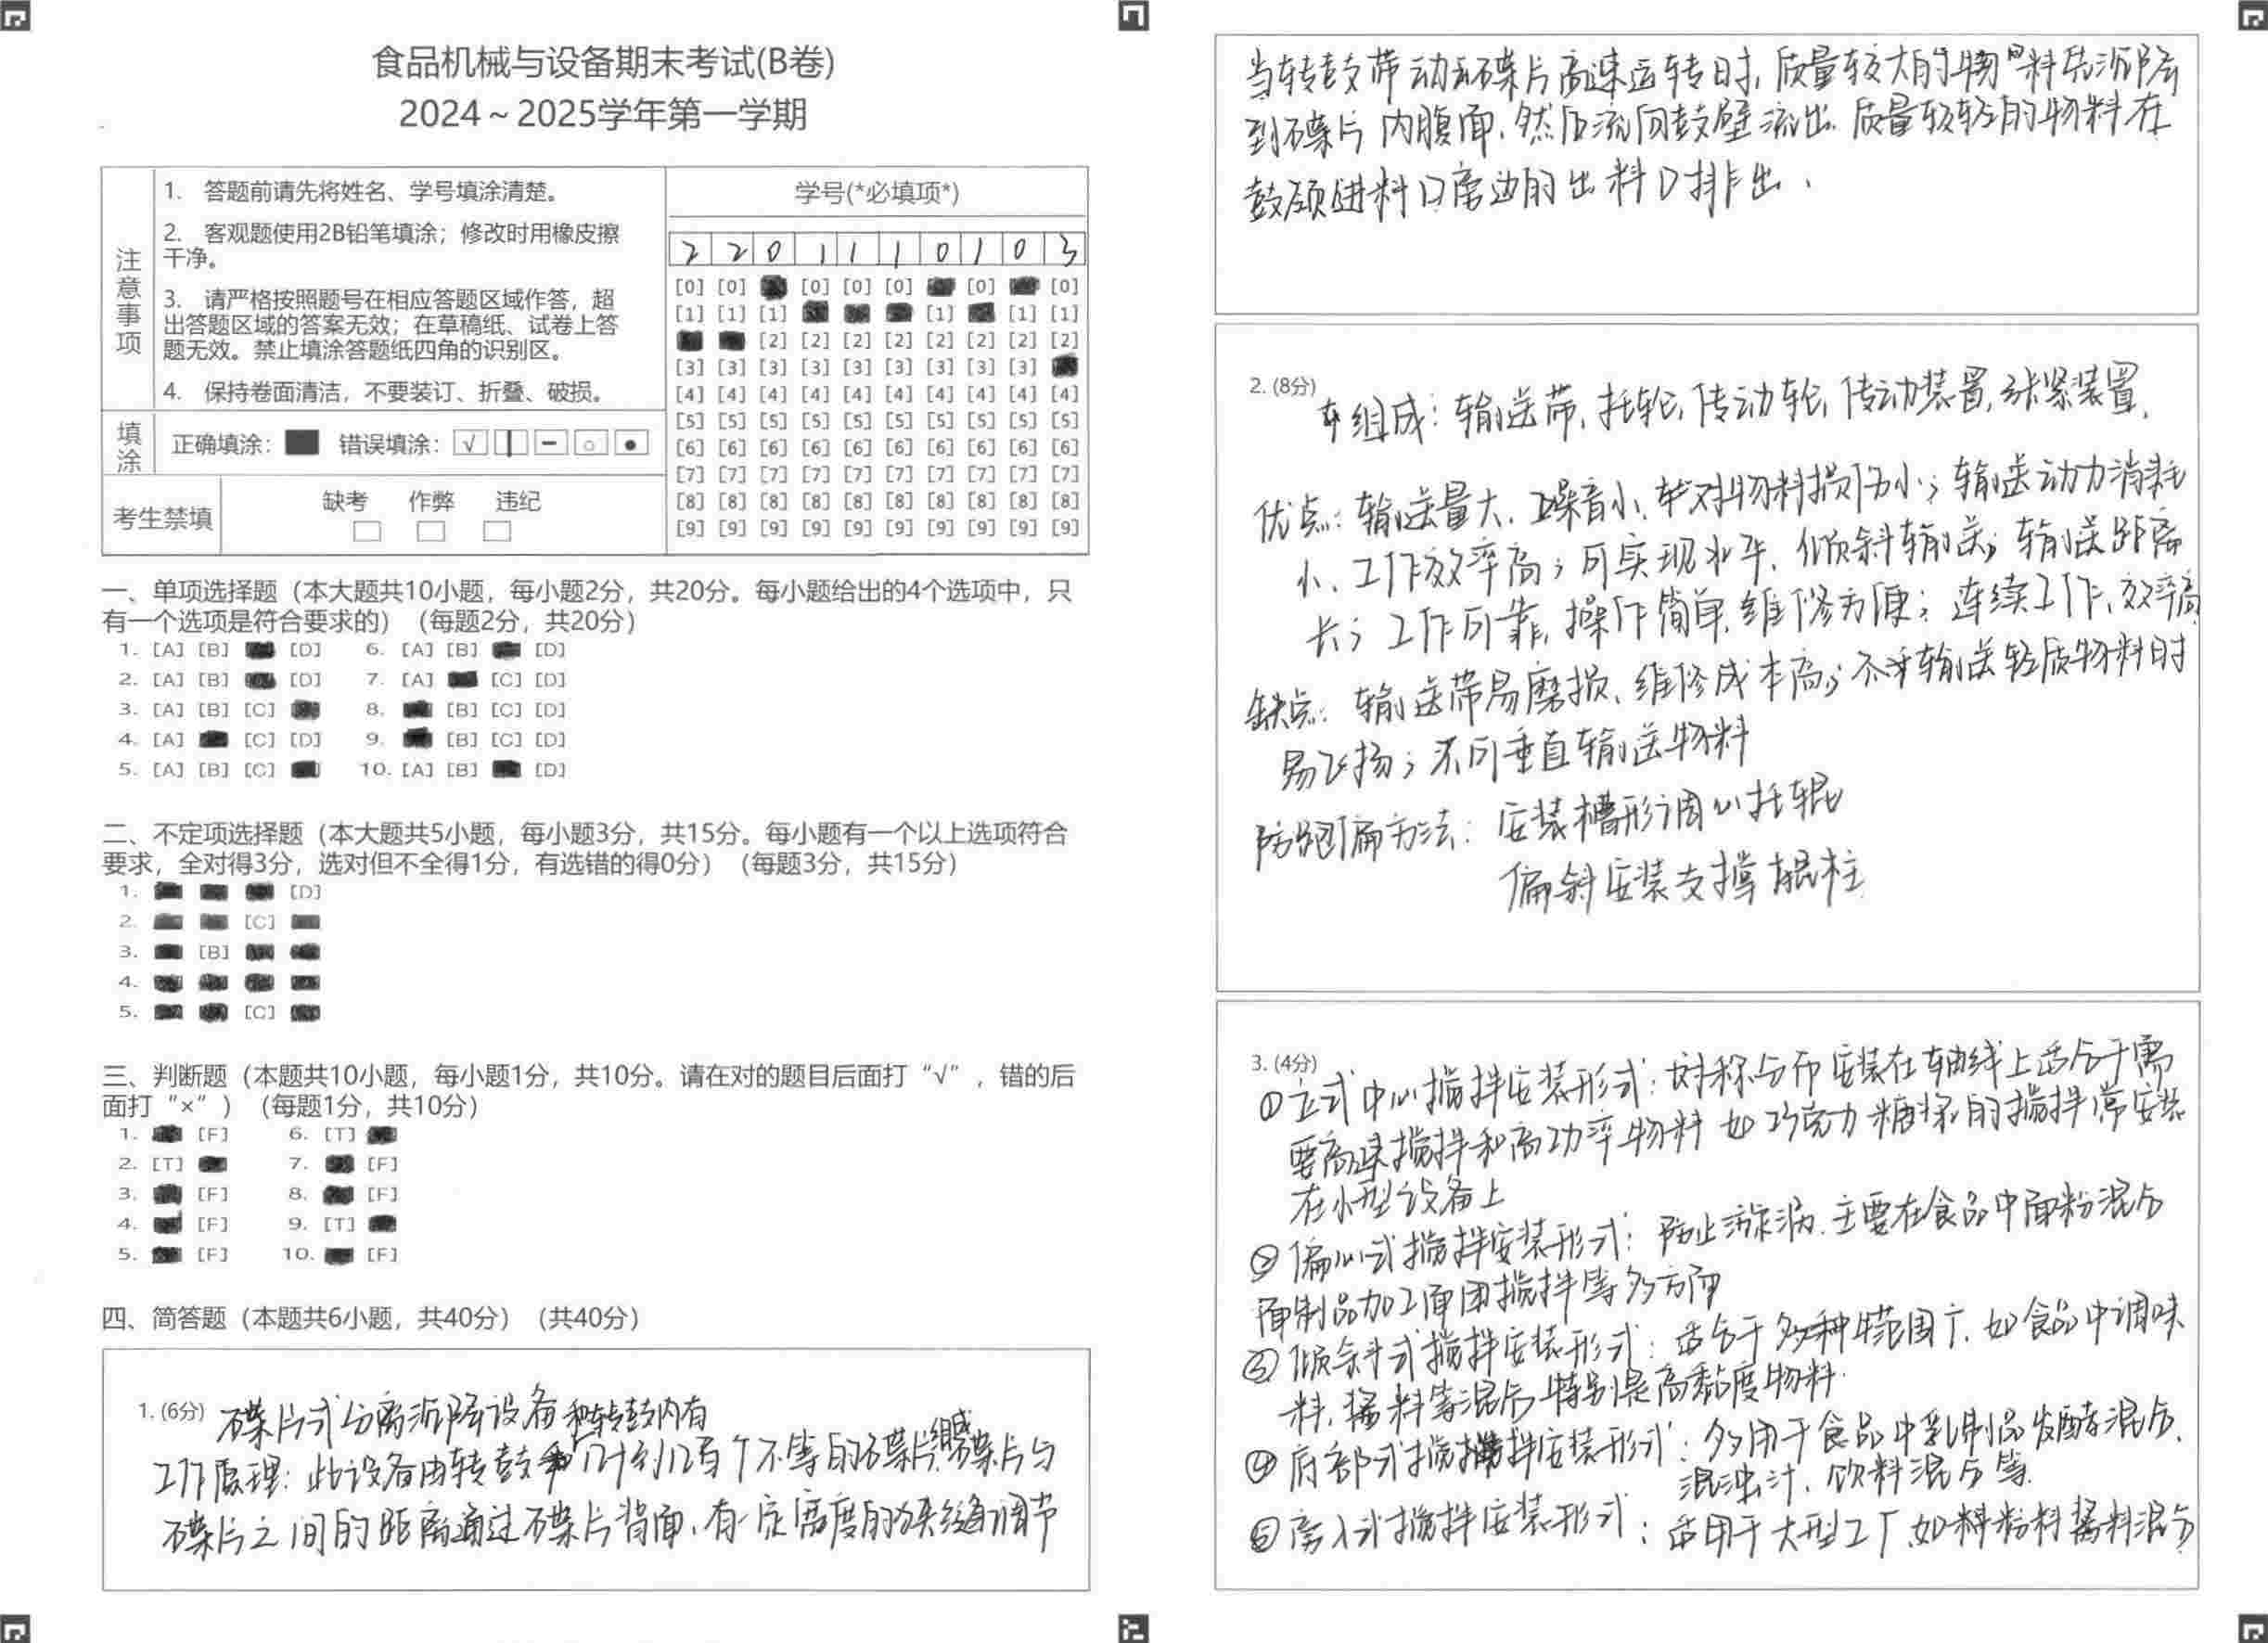 食品机械与设备期末考试(B卷)
2024～2025学年第一学期
注意事项
1. 答题前请先将姓名、学号填涂清楚。
2. 客观题使用2B铅笔填涂；修改时用橡皮擦
干净。
3. 请严格按照题号在相应答题区域作答，超
出答题区域的答案无效；在草稿纸、试卷上答
题无效。禁止填涂答题纸四角的识别区。
4. 保持卷面清洁，不要装订、折叠、破损。
填涂
正确填涂： 错误填涂：
考生禁填
缺考 作弊 违纪
学号(*必填项*)
2 2 0 1 1 1 0 1 0 3
[0] [0] [0] [0] [0] [0] [0]
[1] [1] [1] [1] [1] [1]
[2] [2] [2] [2] [2] [2] [2] [2]
[3] [3] [3] [3] [3] [3] [3] [3] [3]
[4] [4] [4] [4] [4] [4] [4] [4] [4] [4]
[5] [5] [5] [5] [5] [5] [5] [5] [5] [5]
[6] [6] [6] [6] [6] [6] [6] [6] [6] [6]
[7] [7] [7] [7] [7] [7] [7] [7] [7] [7]
[8] [8] [8] [8] [8] [8] [8] [8] [8] [8]
[9] [9] [9] [9] [9] [9] [9] [9] [9] [9]
一、单项选择题（本大题共10小题，每小题2分，共20分。每小题给出的4个选项中，只
有一个选项是符合要求的）（每题2分，共20分）
1. [A] [B] [D] 6. [A] [B] [D]
2. [A] [B] [D] 7. [A] [C] [D]
3. [A] [B] [C] 8. [B] [C] [D]
4. [A] [C] [D] 9. [B] [C] [D]
5. [A] [B] [C] 10. [A] [B] [D]
二、不定项选择题（本大题共5小题，每小题3分，共15分。每小题有一个以上选项符合
要求，全对得3分，选对但不全得1分，有选错的得0分）（每题3分，共15分）
1. [D]
2. [C]
3. [B]
4.
5. [C]
三、判断题（本题共10小题，每小题1分，共10分。请在对的题目后面打“√”，错的后
面打“×”）（每题1分，共10分）
1. [F] 6. [T]
2. [T] 7. [F]
3. [F] 8. [F]
4. [F] 9. [T]
5. [F] 10. [F]
四、简答题（本题共6小题，共40分）（共40分）
1. (6分) 碟片式分离沉降设备 转鼓内有
工作原理：此设备由转鼓和几十到几百个不等的碟片组成 碟片与
碟片之间的距离通过碟片背面，有一定高度的狭缝调节
当转鼓带动碟片高速运转时，质量较大的物料先沉降
到碟片内腹面，然后流向鼓壁流出，质量较轻的物料在
鼓颈进料口旁边的出料口排出、
2. (8分) 组成：输送带，托轮，传动轮，传动装置，张紧装置，
优点：输送量大、噪音小、对物料损伤小；输送动力消耗
小、工作效率高；可实现水平、倾斜输送；输送距离
长；工作可靠，操作简单，维修方便；连续工作，效率高
缺点：输送带易磨损、维修成本高；输送轻质物料时
易飞扬；不可垂直输送物料
防跑偏方法：安装槽形调心托辊
偏斜安装支撑辊柱
3. (4分)
①立式中心搅拌安装形式：对称分布 安装在轴线上适合于需
要高速搅拌和高功率物料 如巧克力糖浆的搅拌，常安装
在小型设备上
②偏心式搅拌安装形式：防止漩涡，主要在食品中面粉混合
面制品加工面团搅拌等多方面
③倾斜式搅拌安装形式：适合于多种 范围广，如食品中调味
料，酱料等混合 特别是高黏度物料.
④底部式搅拌安装形式：多用于食品中乳制品发酵混合，
混浊汁，饮料混合等.
⑤旁入式搅拌安装形式：适用于大型工厂 如 粉料酱料混合